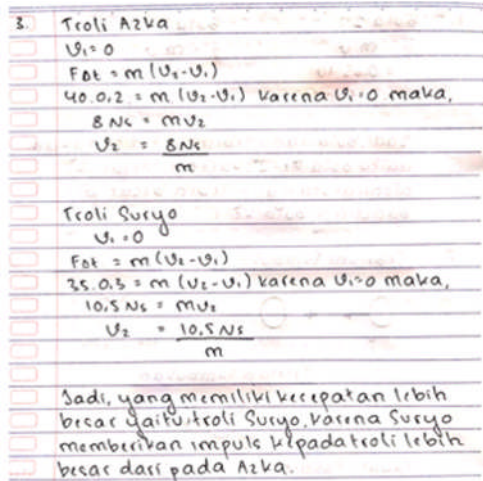 3. Troli Azka
v₁ = 0
F∆t = m (v₂-v₁)
40.0,2 = m (v₂-v₁) karena v₁=0 maka,
8 Ns = mv₂
v₂ = 8 Ns
m
Troli Suryo
v₁ = 0
F∆t = m (v₂-v₁)
35.0,3 = m (v₂-v₁) karena v₁=0 maka,
10,5 Ns = mv₂
v₂ = 10,5 Ns
m
Jadi, yang memiliki kecepatan lebih
besar yaitu troli Suryo, karena Suryo
memberikan impuls kepada troli lebih
besar dari pada Azka.